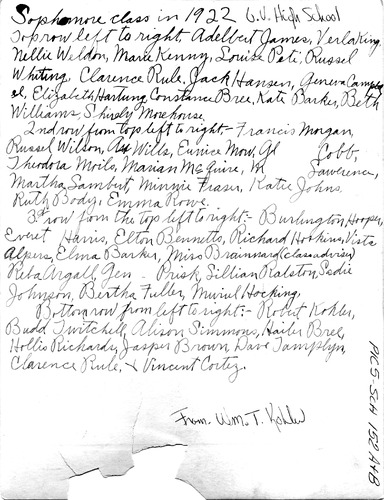 Sophomore class in 1922 G.V. High School
Top row left to right Adelbert James, Verla King,
Nellie Weldon, Marie Kenny, Louise Pati, Russel
Whiting, Clarence Rule, Jack Hansen, Geneva Campb
el, Elizabeth Hartung, Constance Bree, Kate Barker, Beth
Williams, Shirely Morehouse.
2nd row from top left to right - Francis Morgan,
Russell Wilson, Art Wills, Eunice Mow, Gl Cobb,
Theodora Moils, Marian McGuire, M Lawrence,
Martha Sambert, Minnie Fraser, Katie Johns.
Ruth Body, Emma Rowe.
3rd row from the top left to right:- Burlington Hooper,
Everet Harris, Elton Bennetts, Richard Hoskins, Vista
Alpers, Elma Barker, Miss Brainnard (class adviser)
Reba Argall, Gen Prisk, Lillian Ralston, Sadie
Johnson, Bertha Fuller, Muriel Hocking,
Bottom row from left to right:- Robert Kohler,
Budd Twitchell, Alison Simmons, Hailer Bree,
Hollis Richards, Jasper Brown, Dave Tamplyn,
Clarence Rule, & Vincent Cortez.
From Wm. T. Kohler
PICS-SCH 152 A+B